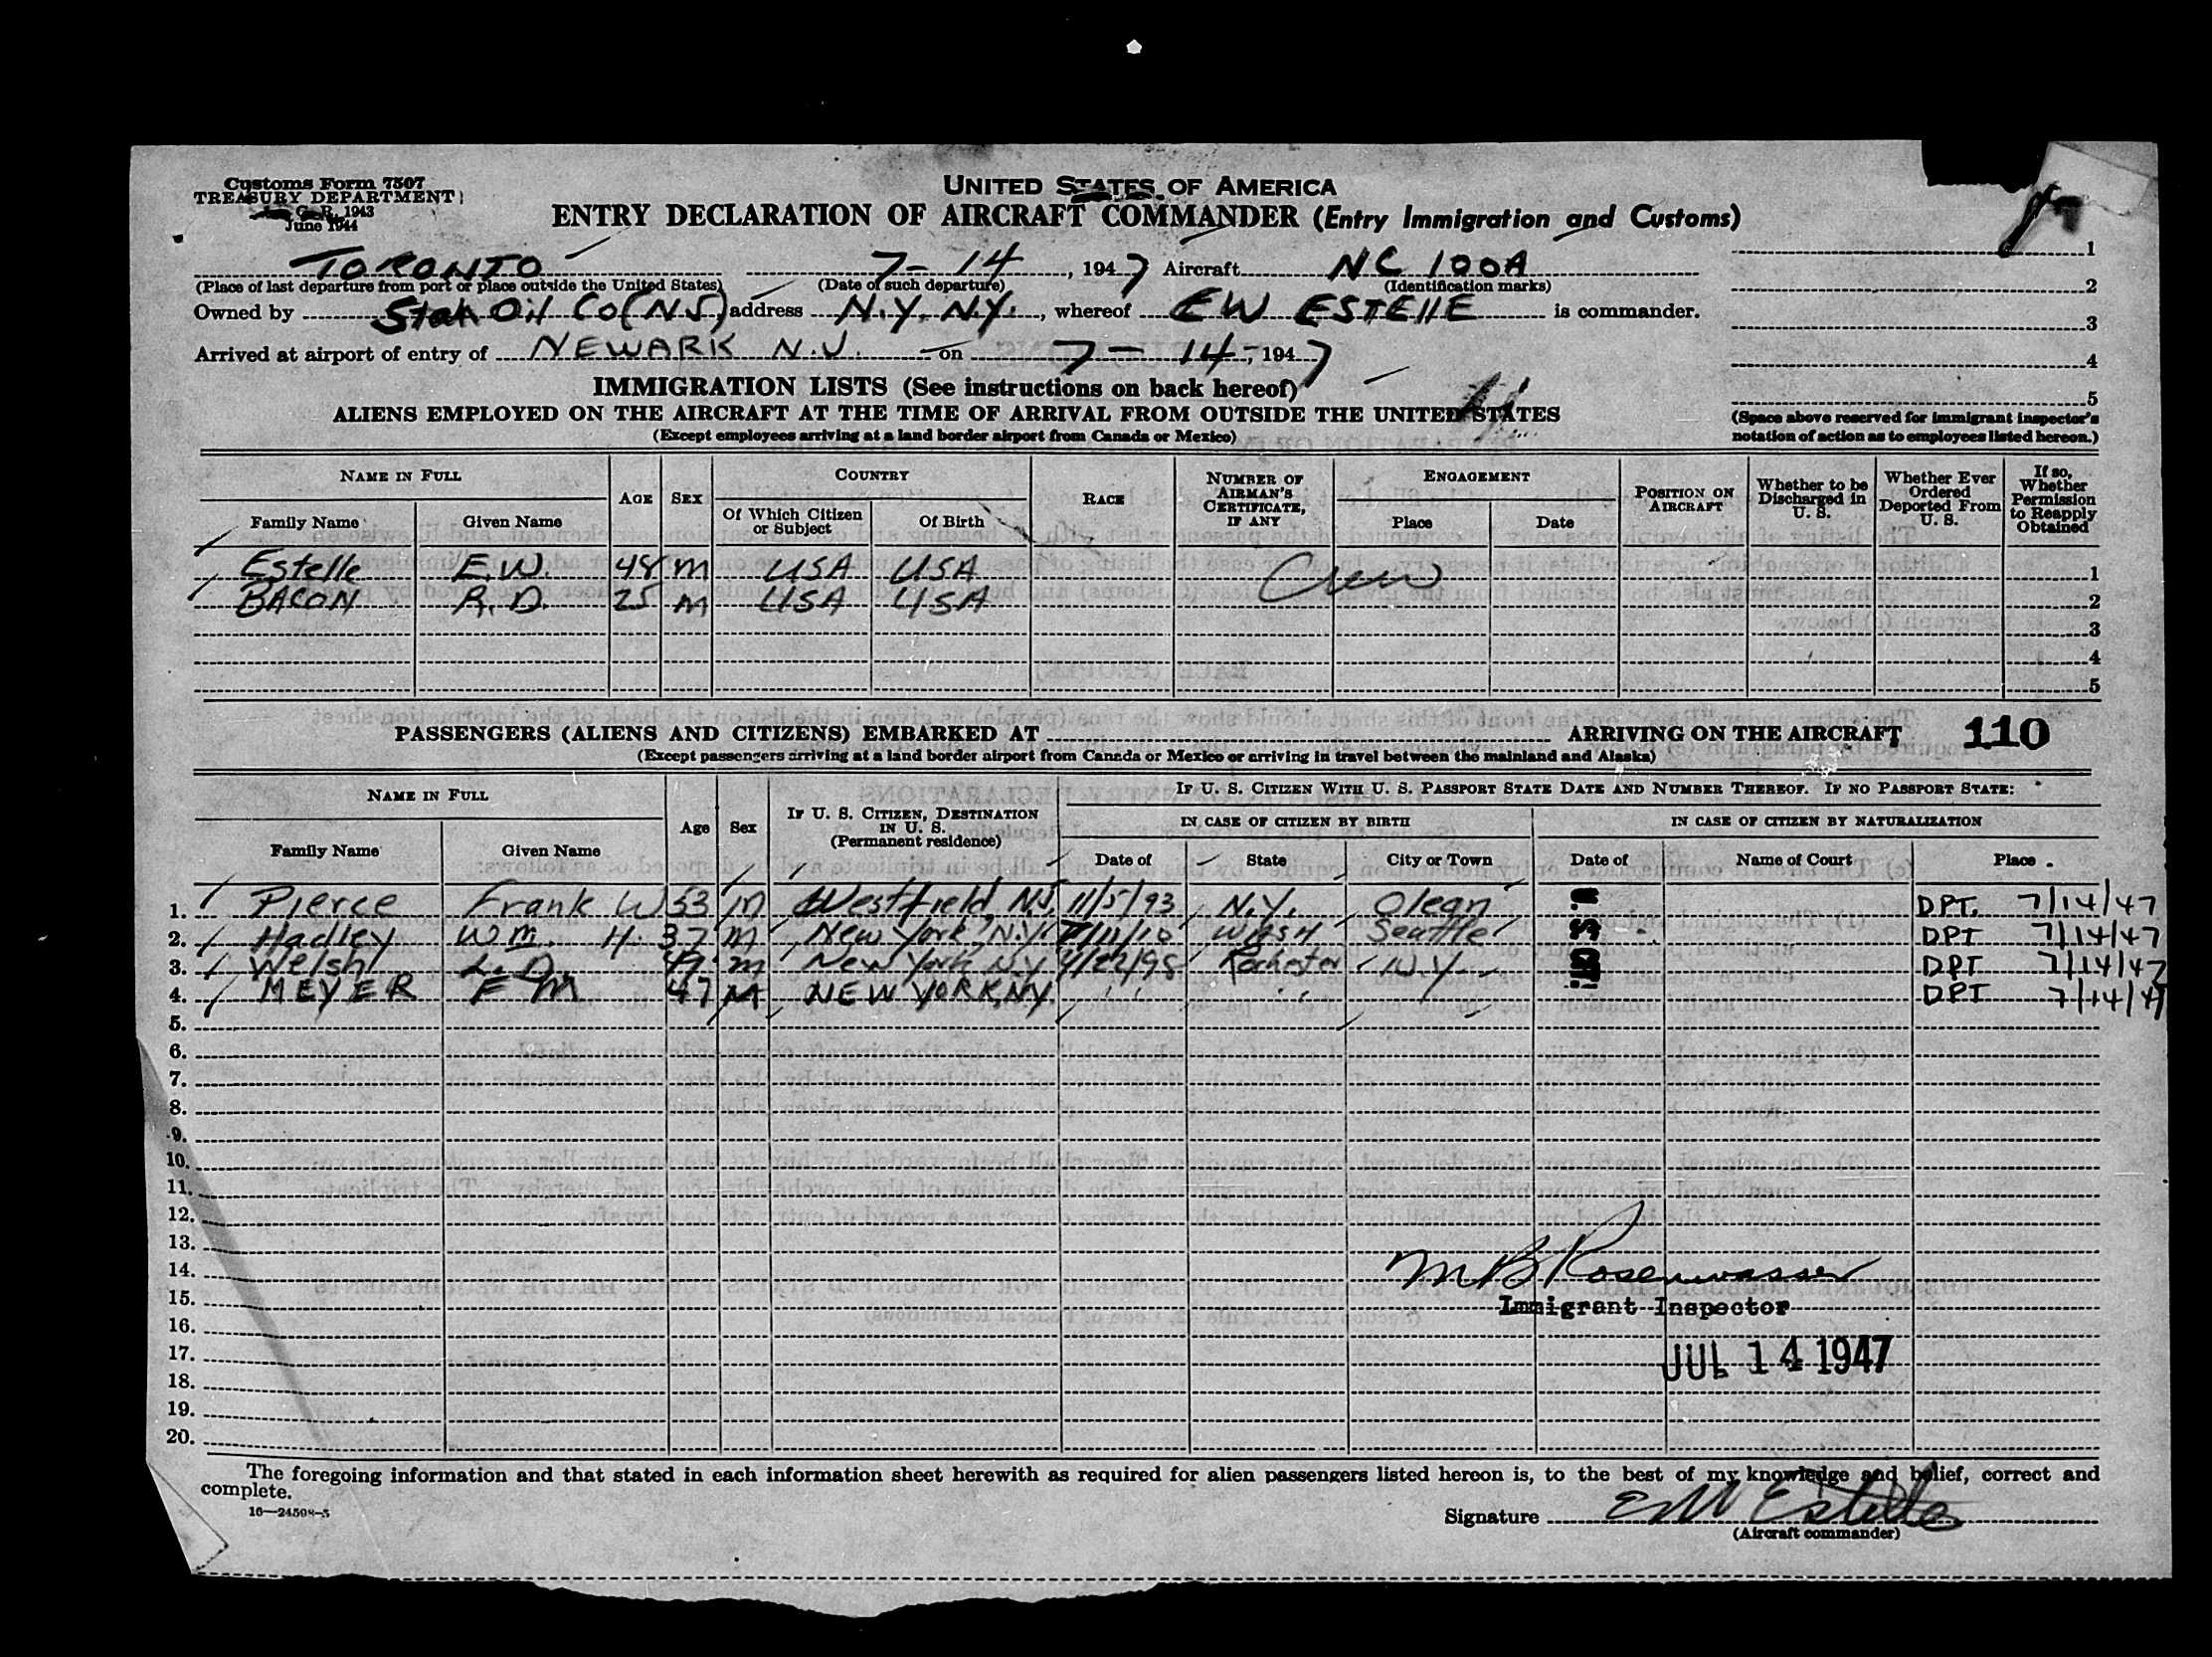 Customs Form 7507
TREASURY DEPARTMENT
1943
June 1944
UNITED STATES OF AMERICA
ENTRY DECLARATION OF AIRCRAFT COMMANDER (Entry Immigration and Customs)
TORONTO 7-14, 1947 Aircraft NC 100A 1
(Place of last departure from port or place outside the United States) (Date of such departure) (Identification marks)
2
Owned by Oil Co (NJ) address N.Y. N.Y., whereof EW ESTEllE is commander.
3
Arrived at airport of entry of NEWARK N.J. on 7-14-, 1947
4
IMMIGRATION LISTS (See instructions on back hereof)
5
ALIENS EMPLOYED ON THE AIRCRAFT AT THE TIME OF ARRIVAL FROM OUTSIDE THE UNITED STATES
(Space above reserved for immigrant inspector's
(Except employees arriving at a land border airport from Canada or Mexico)
notation of action as to employees listed hereon.)
NAME IN FULL AGE SEX COUNTRY RACE NUMBER OF AIRMAN'S CERTIFICATE, IF ANY ENGAGEMENT POSITION ON AIRCRAFT Whether to be Discharged in U. S. Whether Ever Ordered Deported From U. S. If so, Whether Permission to Reapply Obtained
Family Name Given Name Of Which Citizen or Subject Of Birth Place Date
Estelle E.W. 48 M USA USA Crew 1
BACON R.D. 25 M USA USA 2
3
4
5
PASSENGERS (ALIENS AND CITIZENS) EMBARKED AT ARRIVING ON THE AIRCRAFT 110
(Except passengers arriving at a land border airport from Canada or Mexico or arriving in travel between the mainland and Alaska)
NAME IN FULL Age Sex IF U. S. CITIZEN, DESTINATION IN U. S. (Permanent residence) IF U. S. CITIZEN WITH U. S. PASSPORT STATE DATE AND NUMBER THEREOF. IF NO PASSPORT STATE:
IN CASE OF CITIZEN BY BIRTH IN CASE OF CITIZEN BY NATURALIZATION
Family Name Given Name Date of State City or Town Date of Name of Court Place
1. Pierce Frank W 53 M Westfield, N.J. 11/5/93 N.Y. Olean DPT. 7/14/47
2. Hadley Wm. H. 37 M New York, N.Y. WASH Seattle DPT 7/14/47
3. Welsh L.D. 49 M New York N.Y. 4/22/98 Rochester N.Y. DPT 7/14/47
4. MEYER F M 47 M NEW YORK, NY. DPT 7/14/47
5.
6.
7.
8.
9.
10.
11.
12.
13.
14. M B Rosenwasser
15. Immigrant Inspector
16.
17. JUL 14 1947
18.
19.
20.
The foregoing information and that stated in each information sheet herewith as required for alien passengers listed hereon is, to the best of my knowledge and belief, correct and
complete.
16—24598-3
Signature EW Estelle
(Aircraft commander)